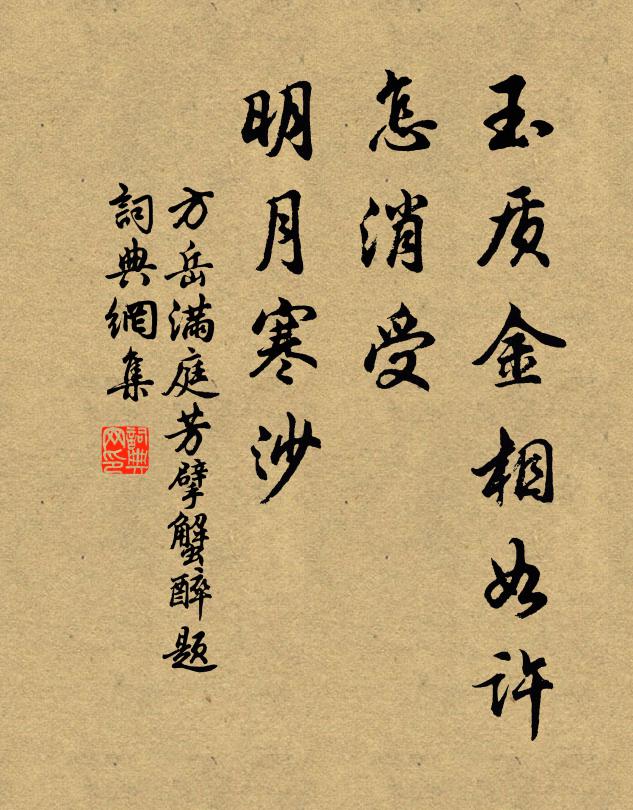 玉质金相如许
怎消受
明月寒沙
方岳满庭芳擘蟹醉题
詞典網集
詞典網印